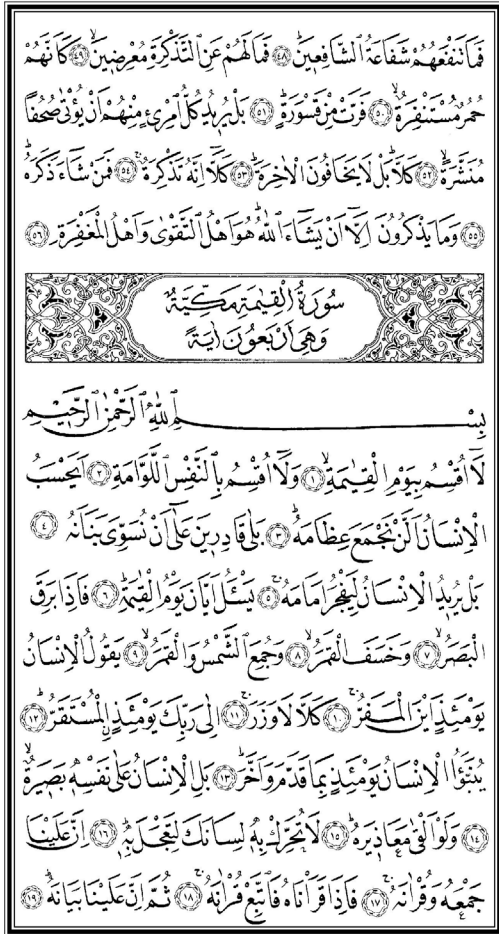 فَمَا تَنْفَعُهُمْ شَفَاعَةُ الشَّافِعٖينَؕ ﴿٤٨﴾ فَمَا لَهُمْ عَنِ التَّذْكِرَةِ مُعْرِضٖينَۙ ﴿٤٩﴾ كَاَنَّهُمْ
حُمُرٌ مُسْتَنْفِرَةٌۙ ﴿٥٠﴾ فَرَّتْ مِنْ قَسْوَرَةٍؕ ﴿٥١﴾ بَلْ يُرٖيدُ كُلُّ امْرِئٍ مِنْهُمْ اَنْ يُؤْتٰى صُحُفًا
مُنَشَّرَةًۙ ﴿٥٢﴾ كَلَّاؕ بَلْ لَا يَخَافُونَ الْاٰخِرَةَؕ ﴿٥٣﴾ كَلَّٓا اِنَّهُ تَذْكِرَةٌۚ ﴿٥٤﴾ فَمَنْ شَٓاءَ ذَكَرَهُؕ
﴿٥٥﴾ وَمَا يَذْكُرُونَ اِلَّٓا اَنْ يَشَٓاءَ اللّٰهُؕ هُوَ اَهْلُ التَّقْوٰى وَاَهْلُ الْمَغْفِرَةِ ﴿٥٦﴾
سُورَةُ الْقِيٰمَةِ مَكِّيَّةٌ
وَهِىَ اَرْبَعُونَ اٰيَةً
بِسْمِ اللّٰهِ الرَّحْمٰنِ الرَّحٖيمِ
لَٓا اُقْسِمُ بِيَوْمِ الْقِيٰمَةِۙ ﴿١﴾ وَلَٓا اُقْسِمُ بِالنَّفْسِ اللَّوَّامَةِ ﴿٢﴾ اَيَحْسَبُ
الْاِنْسَانُ اَلَّنْ نَجْمَعَ عِظَامَهُؕ ﴿٣﴾ بَلٰى قَادِرٖينَ عَلٰٓى اَنْ نُسَوِّىَ بَنَانَهُ ﴿٤﴾
بَلْ يُرٖيدُ الْاِنْسَانُ لِيَفْجُرَ اَمَامَهُۚ ﴿٥﴾ يَسْـَٔلُ اَيَّانَ يَوْمُ الْقِيٰمَةِؕ ﴿٦﴾ فَاِذَا بَرِقَ
الْبَصَرُۙ ﴿٧﴾ وَخَسَفَ الْقَمَرُۙ ﴿٨﴾ وَجُمِعَ الشَّمْسُ وَالْقَمَرُۙ ﴿٩﴾ يَقُولُ الْاِنْسَانُ
يَوْمَئِذٍ اَيْنَ الْمَفَرُّۚ ﴿١٠﴾ كَلَّا لَا وَزَرَؕ ﴿١١﴾ اِلٰى رَبِّكَ يَوْمَئِذٍ الْمُسْتَقَرُّؕ ﴿١٢﴾
يُنَبَّؤُا الْاِنْسَانُ يَوْمَئِذٍ بِمَا قَدَّمَ وَاَخَّرَؕ ﴿١٣﴾ بَلِ الْاِنْسَانُ عَلٰى نَفْسِهٖ بَصٖيرَةٌۙ
﴿١٤﴾ وَلَوْ اَلْقٰى مَعَاذٖيرَهُؕ ﴿١٥﴾ لَا تُحَرِّكْ بِهٖ لِسَانَكَ لِتَعْجَلَ بِهٖؕ ﴿١٦﴾ اِنَّ عَلَيْنَا
جَمْعَهُ وَقُرْاٰنَهُۚ ﴿١٧﴾ فَاِذَا قَرَأْنَاهُ فَاتَّبِعْ قُرْاٰنَهُۚ ﴿١٨﴾ ثُمَّ اِنَّ عَلَيْنَا بَيَانَهُؕ ﴿١٩﴾